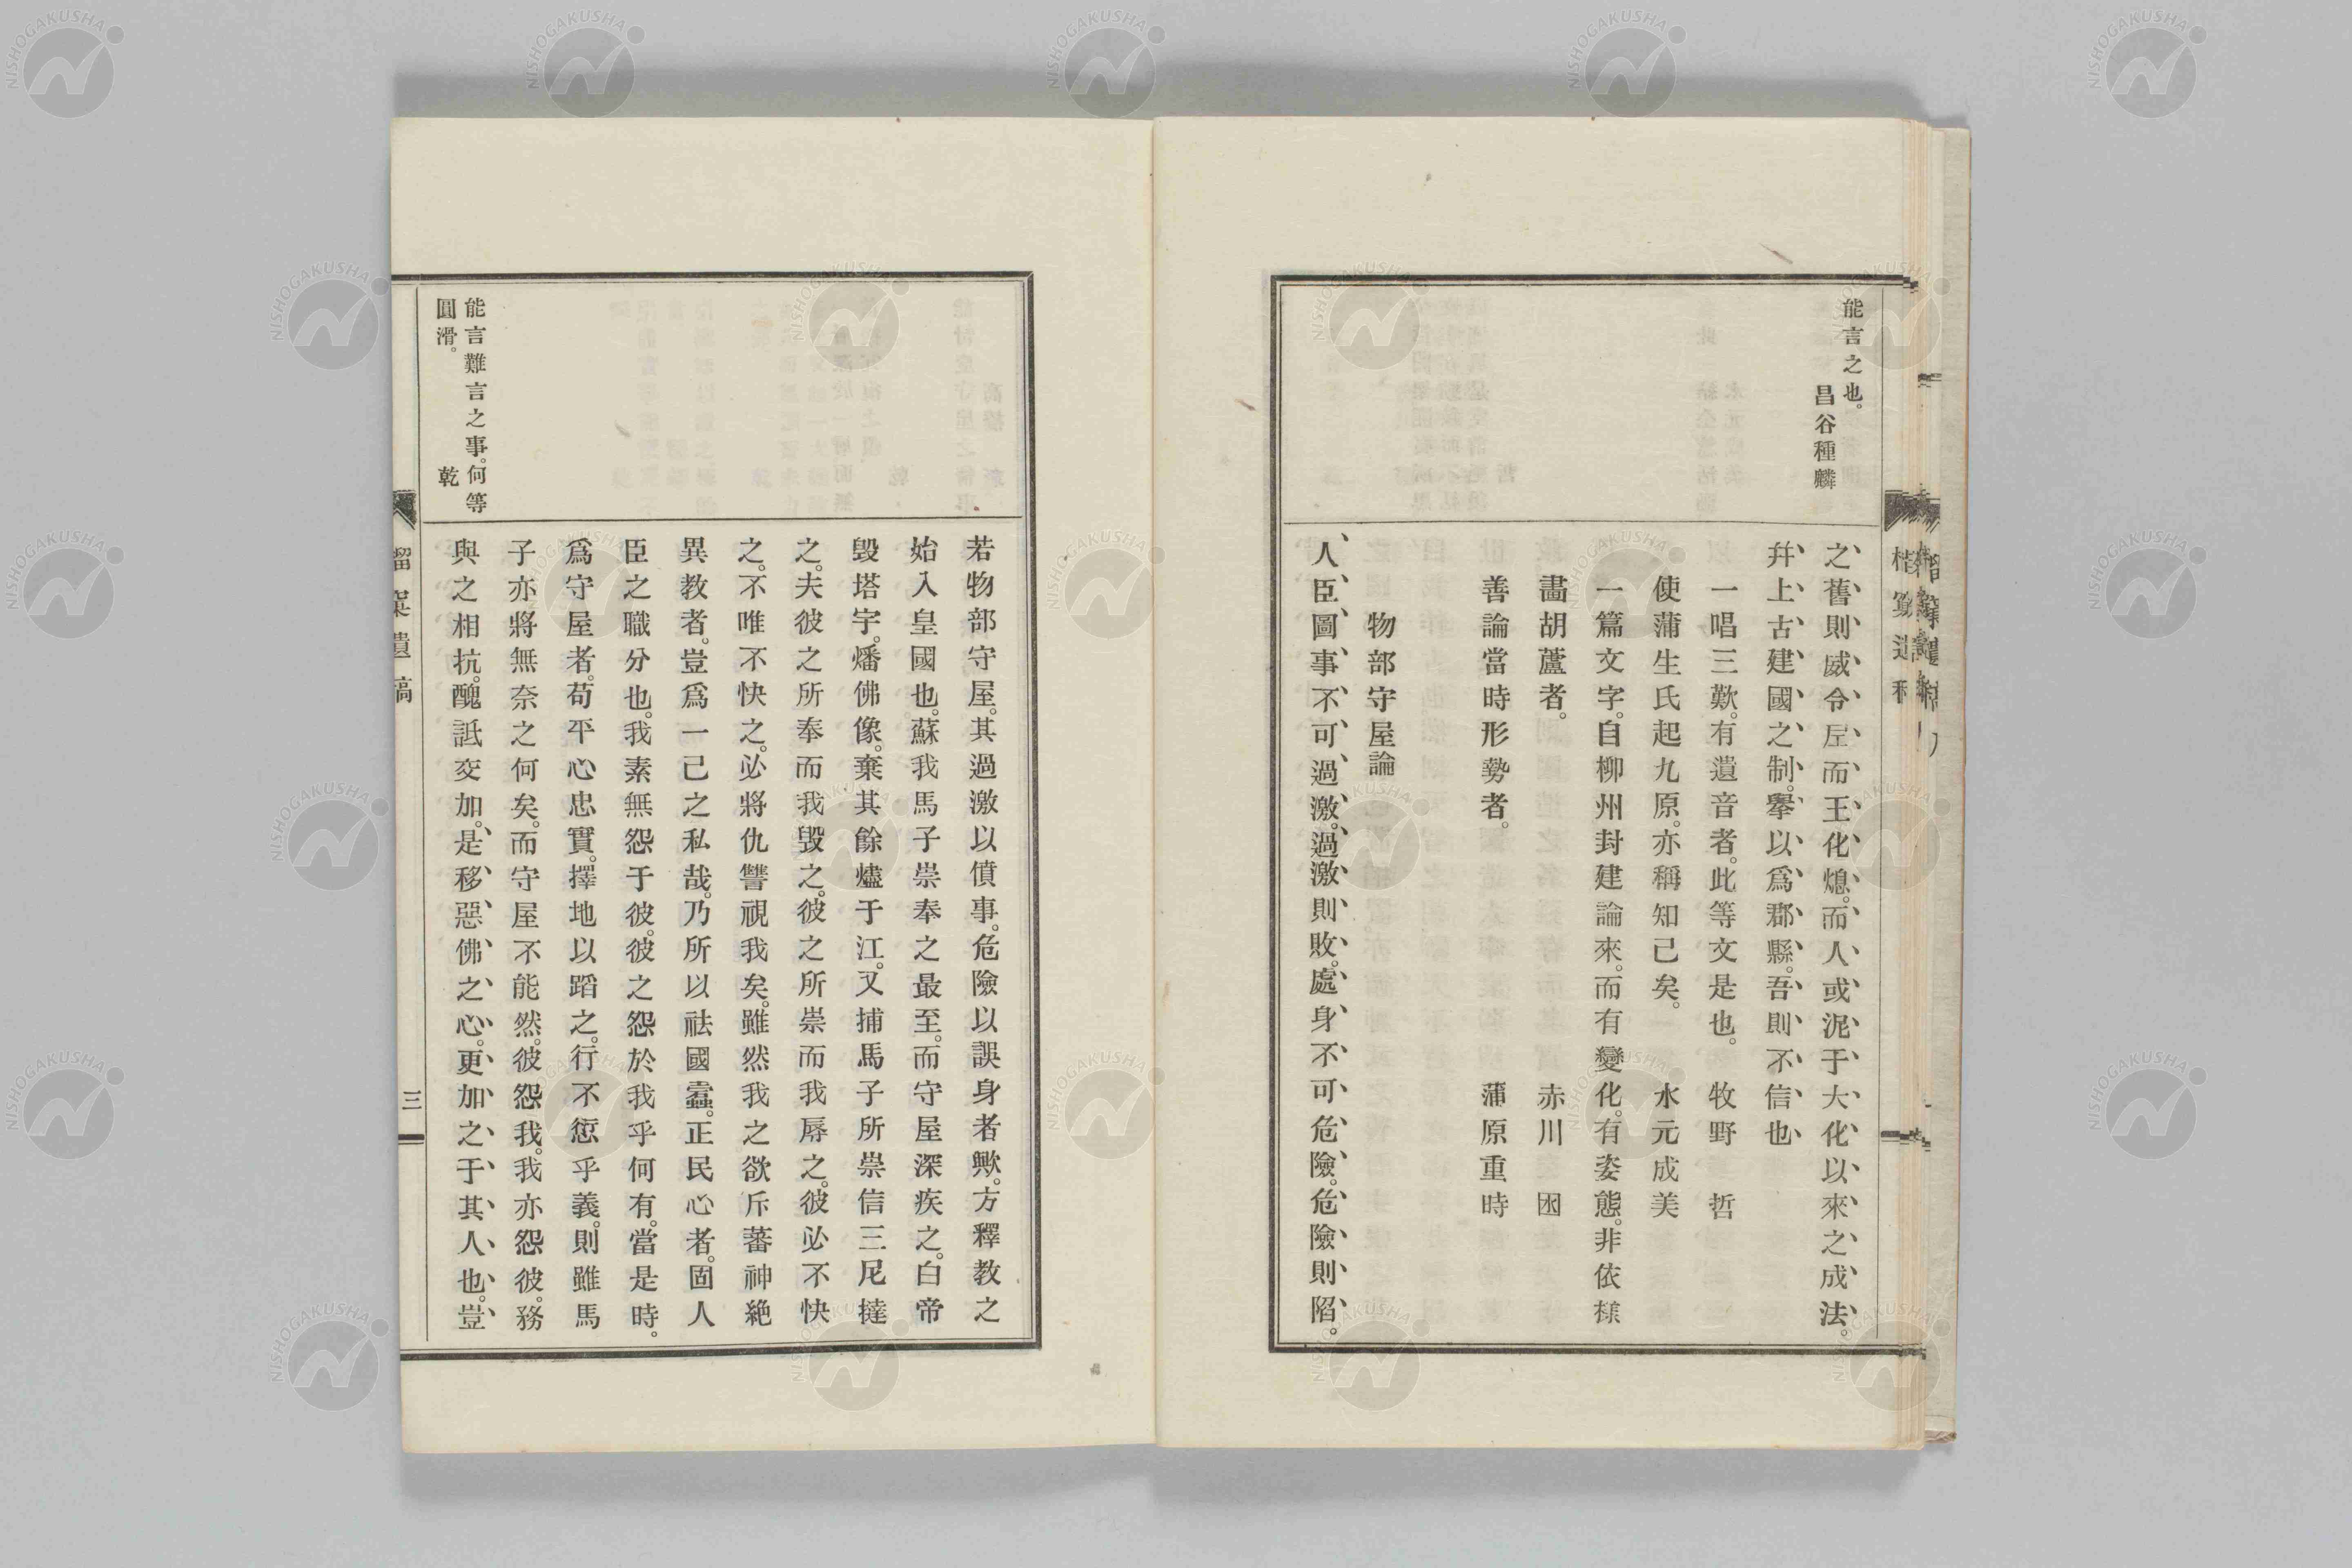 能言之也。
昌谷種麟
之舊則威令屈而王化熄。而人或泥于大化以來之成法。
幷上古建國之制。擧以爲郡縣。吾則不信也
一唱三歎。有遺音者。此等文是也。 牧野 哲
使蒲生氏起九原。亦稱知己矣。 水元成美
一篇文字。自柳州封建論來。而有變化。有姿態。非依樣
畫胡蘆者。 赤川
善論當時形勢者。 蒲原重時
物部守屋論
人臣圖事不可過激。過激則敗。處身不可危險。危險則陷。
若物部守屋。其過激以僨事。危險以誤身者歟。方釋教之
始入皇國也。蘇我馬子崇奉之最至。而守屋深疾之。白帝
毀塔宇。燔佛像。棄其餘燼于江。又捕馬子所崇信三尼撻
之。夫彼之所奉而我毀之。彼之所崇而我辱之。彼必不快
之。不唯不快之。必將仇讐視我矣。雖然我之欲斥蕃神絶
異教者。豈爲一己之私哉。乃所以祛國蠹。正民心者。固人
臣之職分也。我素無怨于彼。彼之怨於我乎何有。當是時。
爲守屋者。苟平心忠實。擇地以蹈之。行不愆乎義。則雖馬
子亦將無奈之何矣。而守屋不能然。彼怨我。我亦怨彼。務
與之相抗。醜詆交加。是移惡佛之心。更加之于其人也。豈
能言難言之事。何等
圓滑。 乾
遺稿
三
NISHOGAKUSHA